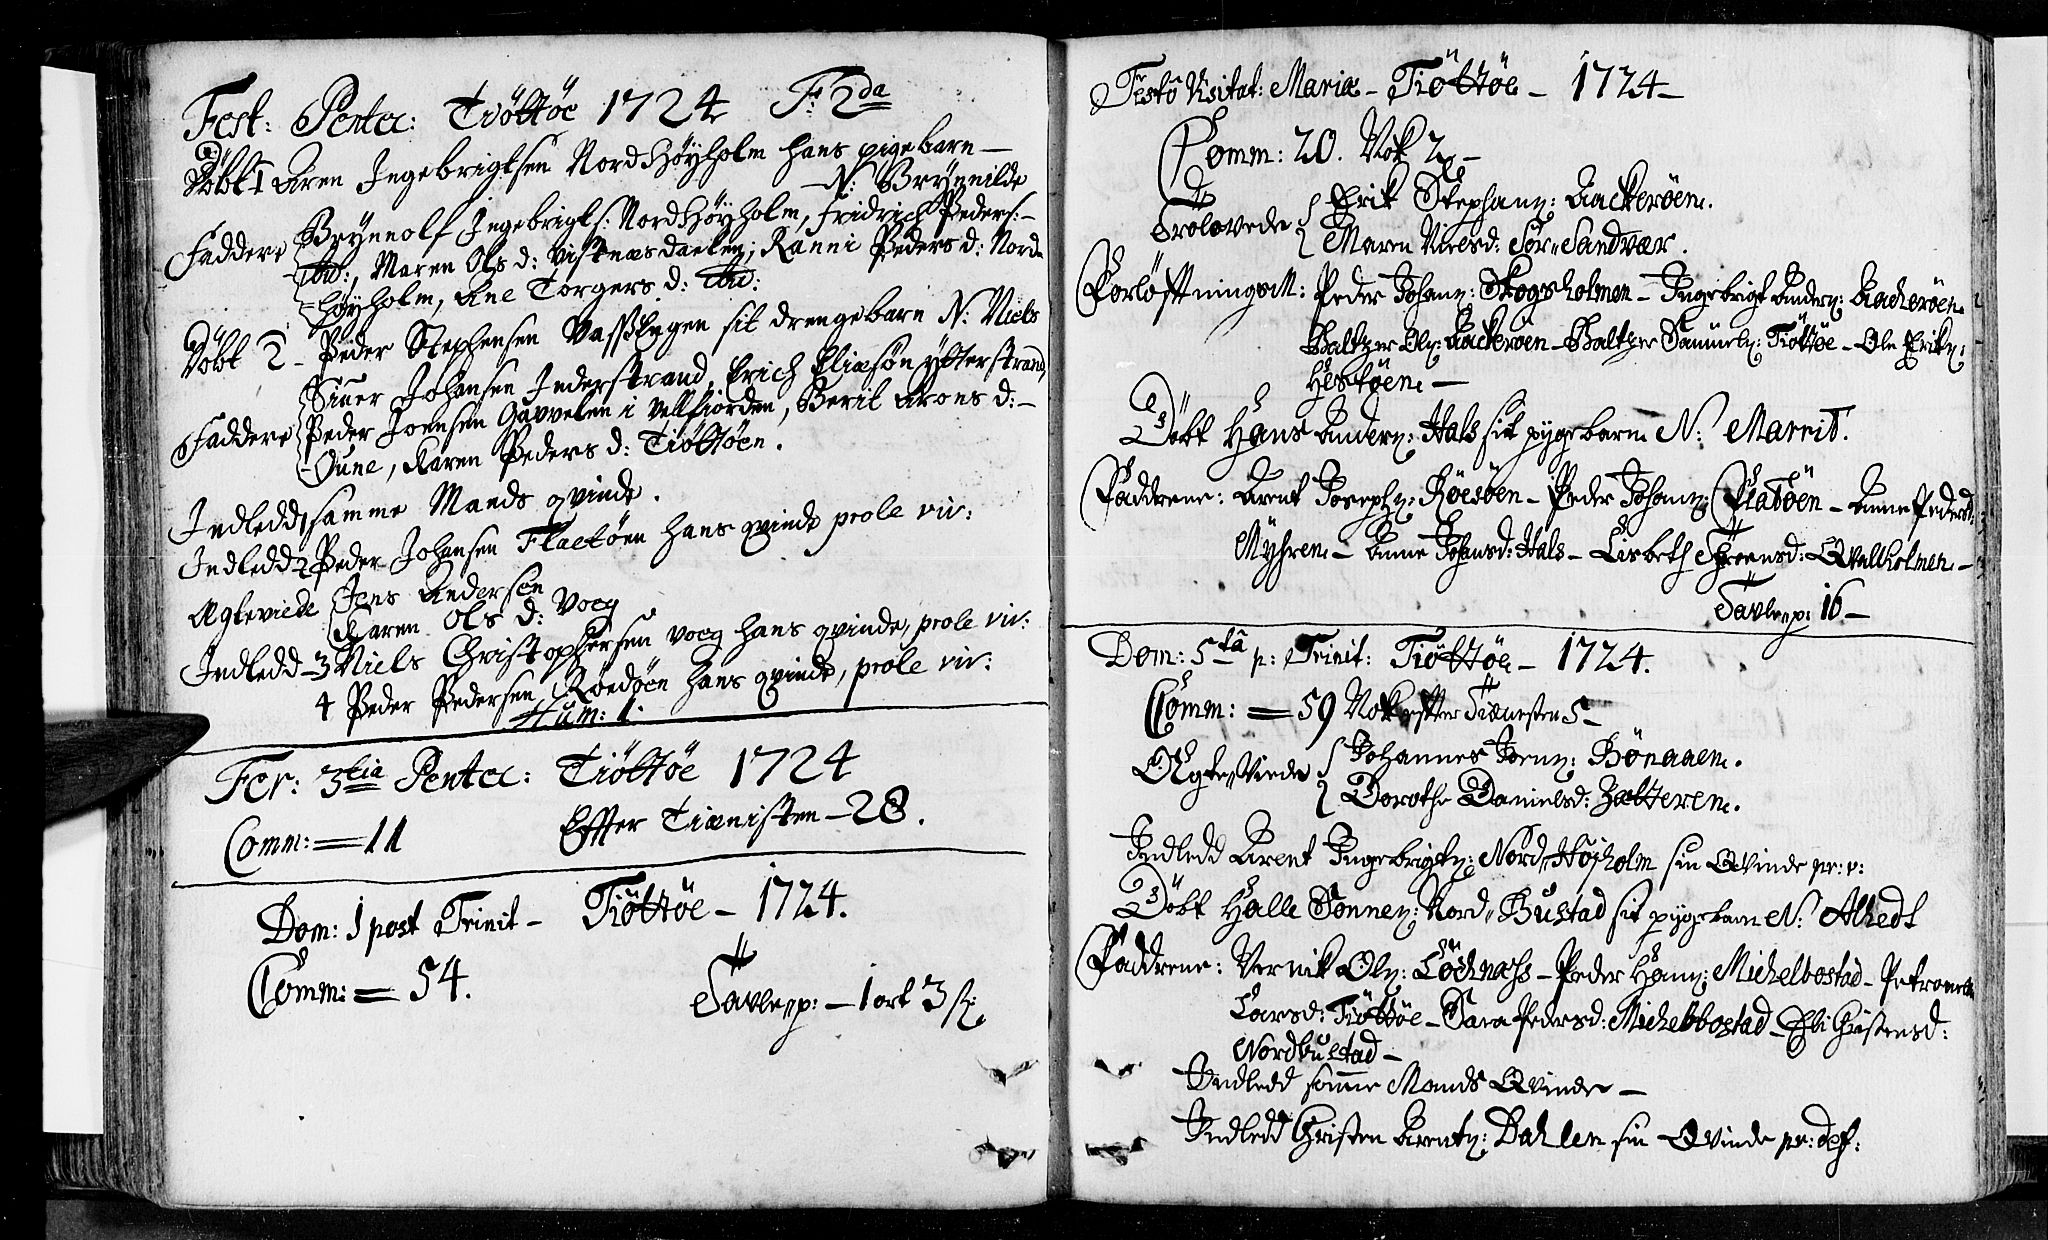 Fest: Pentec: Tiöttöe 1724 F: 2da
Döbt 1 Aren Ingebrigtsen Nord Höyholm hans pigebarn —
N: Brÿnnilde
Faddere Brÿnnolf Ingebrigts: Nord Höyholm, Fridrich Peders: —
ibid:, Maren Ols d: Vistnæsdaelen; Ranni Peders d: Nord=
=höyholm, Ane Torgers d: ibid:
Döbt 2 — Peder Stephensen Vassengen sit drengebarn N: Niels
Siuer Johansen Inderstrand, Erich Eliæsön ÿtterstrand,
Faddere Peder Joensen Gavvelen i Vellfiorden, Berit Arons d: —
Oune, Karen Peders d: Tiöttöen.
Indledd 1 samme Mands qvinde.
Indledd 2 Peder Johansen Flaetöen hans qvinde prole viv:
Ægteviede Jens Andersön
Karen Ols d: Voeg
Indledd — 3 Niels Christophersen Voeg hans qvinde, prole viv:
4 Peder Pedersen Röedöen hans qvinde, prole viv:
Hum: 1.
Fer: 3tia Pentec: Tiöttöe 1724
Comm: = 11 Effter Tienisten — 28.
Dom: 1 post Trinit — Tiöttöe — 1724.
Comm: = 54.
Tavlep: — 1 ort 3 sk:
Festo Visitat: Mariæ — Tiöttöe — 1724 —
Comm: 20. Nok 2 —
Trolovede Erik Stephanz: Aackeröen.
Maren Nielsd: Sör-Sandvær.
Forlöftningsm: Peder Johanz: Skogsholmen — Ingebrigt Anderz: Aackeröen
Baltzer Olz: Aackeröen — Baltzer Samuelz: Tiöttöe — Ole Erikz:
Hestöen —
Döbt Hans Anderz: Hals sit pygebarn N: Marrit.
Faddrene: Arent Josephz: Röesöen — Peder Johanz: Flatöen — Anne Pedersd:
Mÿhren — Anne Johansd: Hals — Lisbeth Thoensd: Qvalholmen —
Tavlep: 16 —
Dom: 5ta p: Trinit: Tiöttöe — 1724.
Comm: = 59 Nok effter Tienesten 5 —
Ægte Viede Johannes Joenz: Bönaaen.
Dorothe Danielsd: Zætteren.
Indledd Arent Ingebrigtz: Nord Höjholm sin Qvinde pr: v:
Döbt Halle Tönnez: Nord-Bustad sit pygebarn N: Alhedt
Faddrene: Vernik Olz: Löchnæss — Peder Hanz: Michelbostad — Petronelle
Larsd: Tiöttöe — Sara Pedersd: Michelbostad — Ebi Christensd:
Nordbustad —
Indledd samme Mands Qvinde —
Indledd Christen Arentz: Dahlen sin Qvinde pr: def: